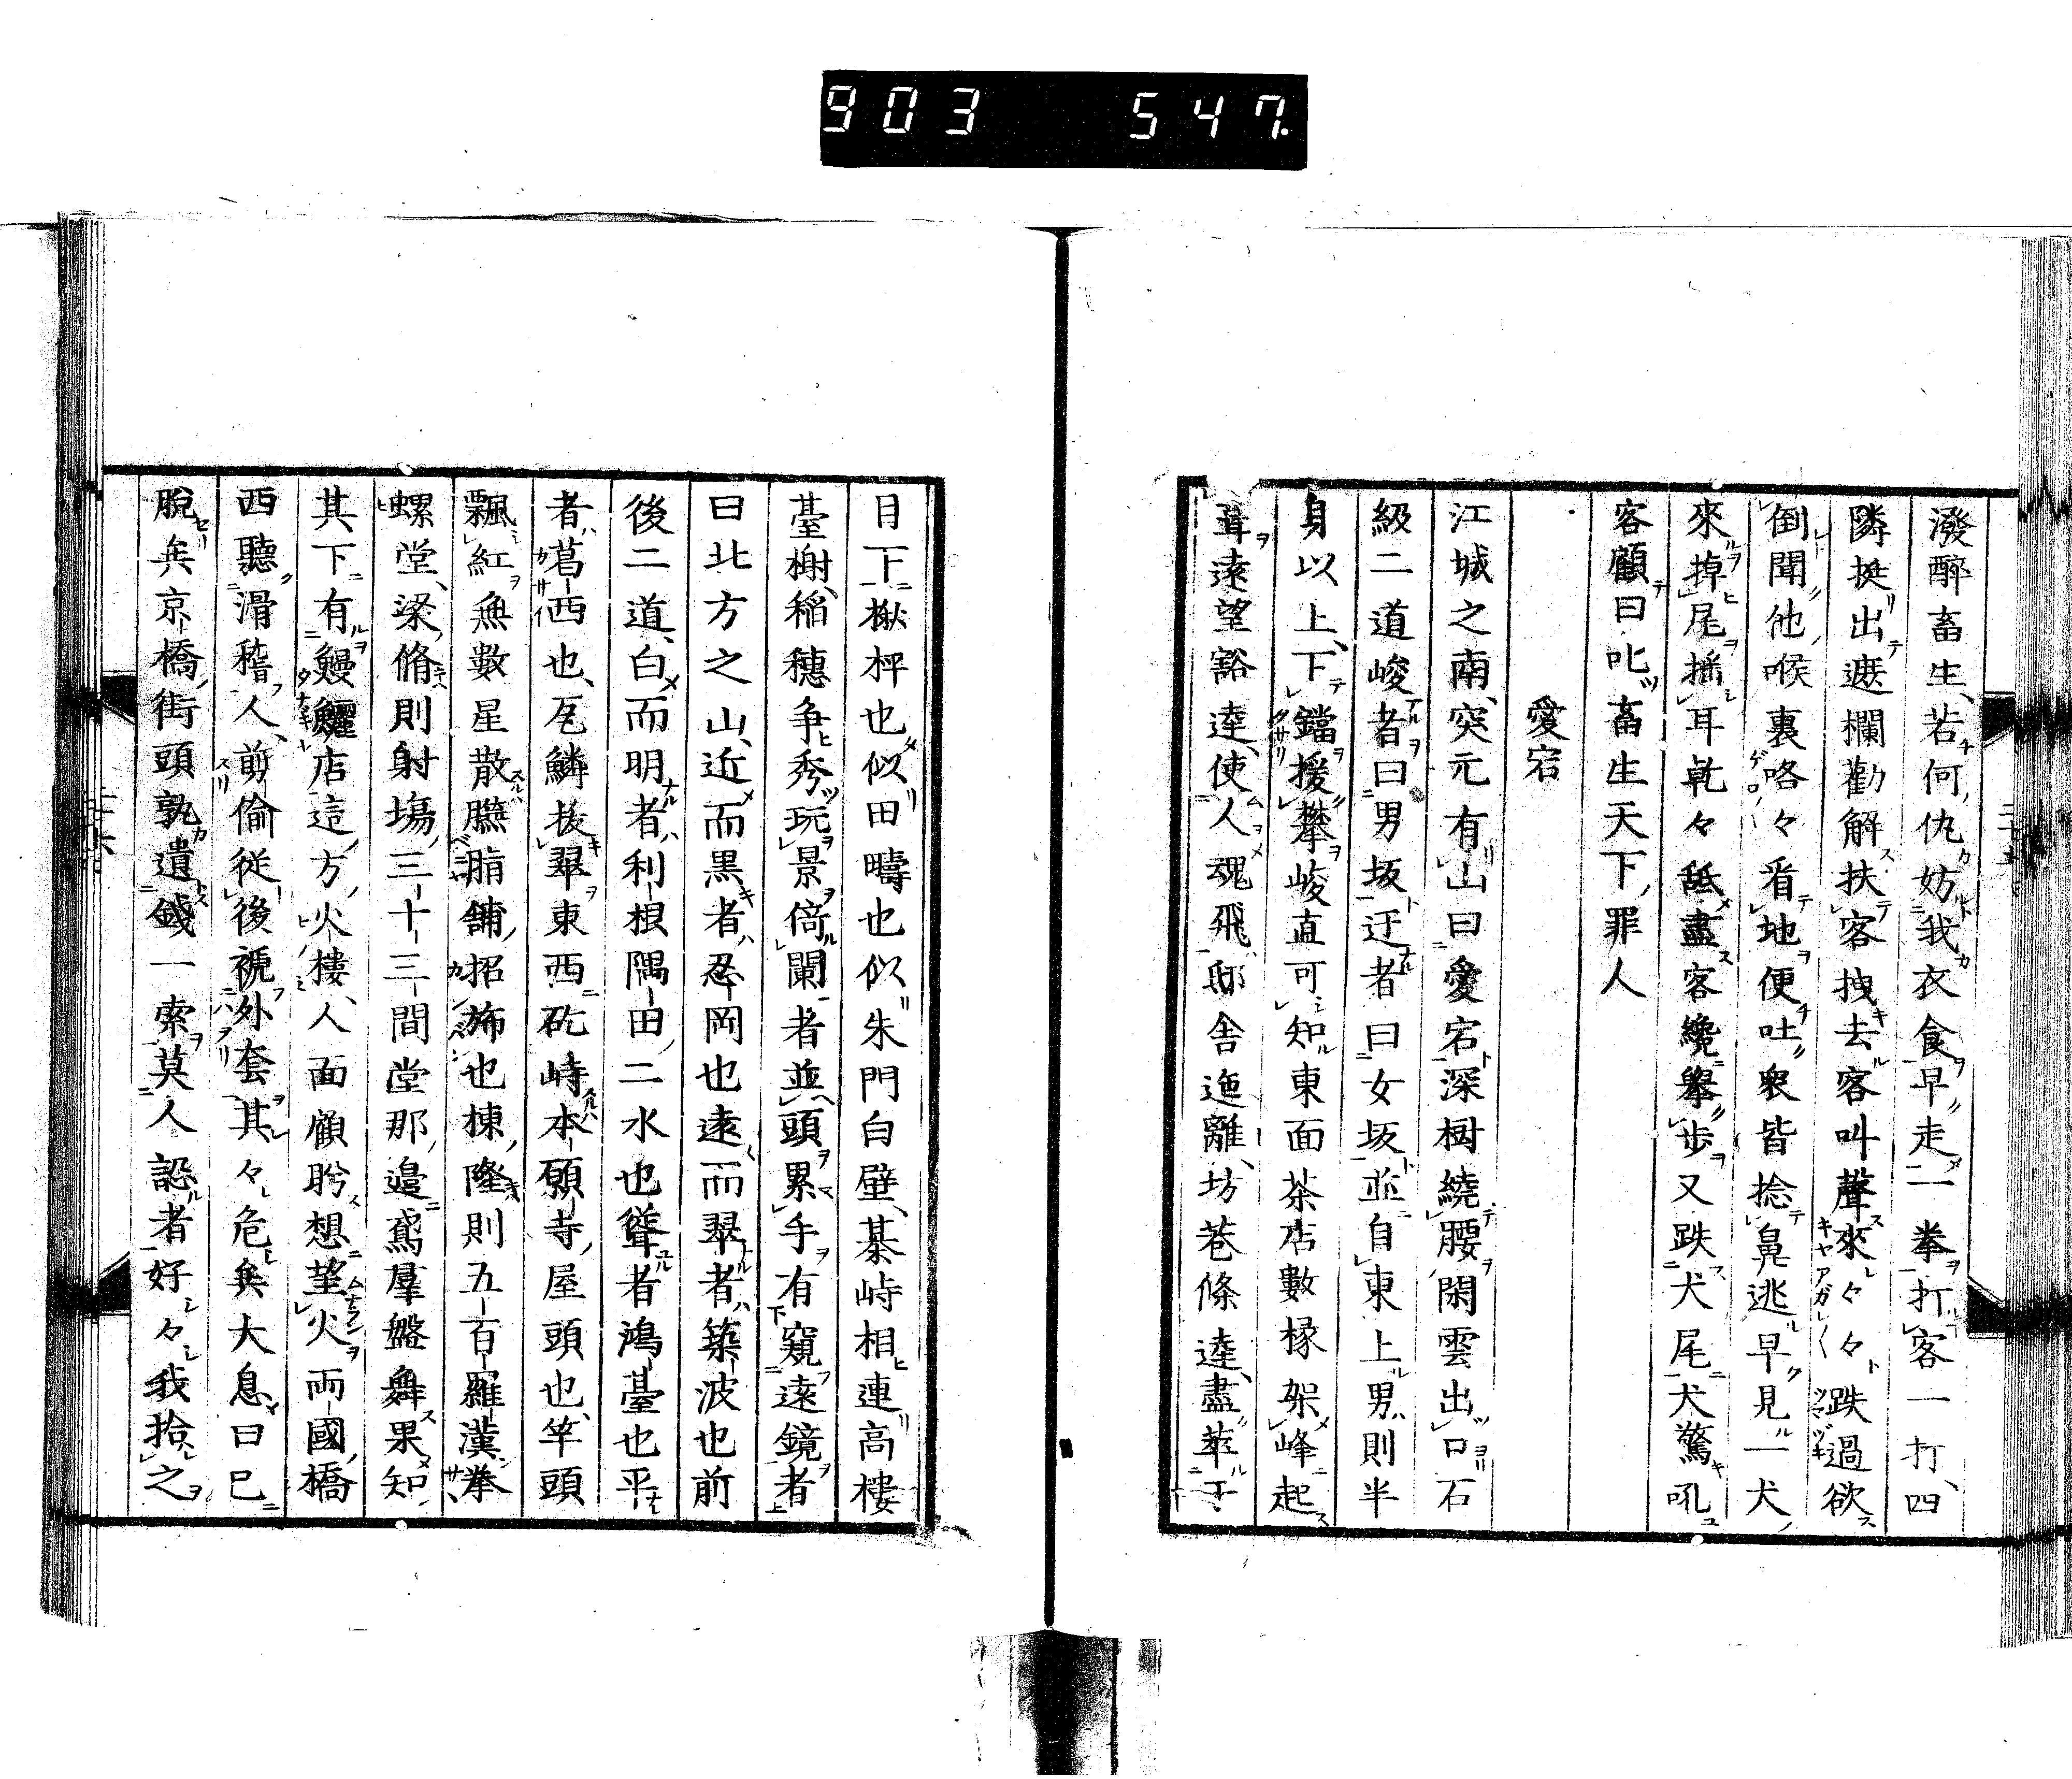 903 547
潑醉畜生、若何仇妨我衣食早走一拳打客一打、四
隣挺出遮欄勸解扶客拽去客叫聲來々々跌過欲
倒聞他喉裏咯々看地便吐衆皆捻鼻逃早見一犬
來掉尾搖耳乾々舐盡客纔擧歩又跌犬尾犬驚吼
客顧曰叱畜生天下罪人
愛宕
江城之南、突兀有山曰愛宕深樹繞腰閑雲出口石
級二道峻者曰男坂迂者曰女坂並自東上男則半
身以上、下鐺援攀峻直可知東面茶店數椽架峰起
葺遠望豁達、使人魂飛邸舍迤離、坊巷條達、盡萃于
目下楸枰也似田疇也似朱門白壁、棊峙相連高樓
臺榭、稲穗争秀玩景倚闌者並頭累手有窺遠鏡者
曰北方之山、近而黒者忍岡也遠而翠者築波也前
後二道、白而明者利根隅田二水也聳者鴻臺也平
者葛西也、瓦鱗抜翠東西矻峙本願寺屋頭也、竿頭
飄紅無數星散臙脂舗招旆也棟隆則五百羅漢拳
螺堂、梁脩則射場三十三間堂那邉鳶羣盤舞果知
其下有鰻鱺店這方火樓、人面顧盼想望火兩國橋
西聽滑稽人、剪偸従後褫外套其々危矣大息曰已
脱矣京橋街頭孰遺錢一索莫人認者好々我拾之